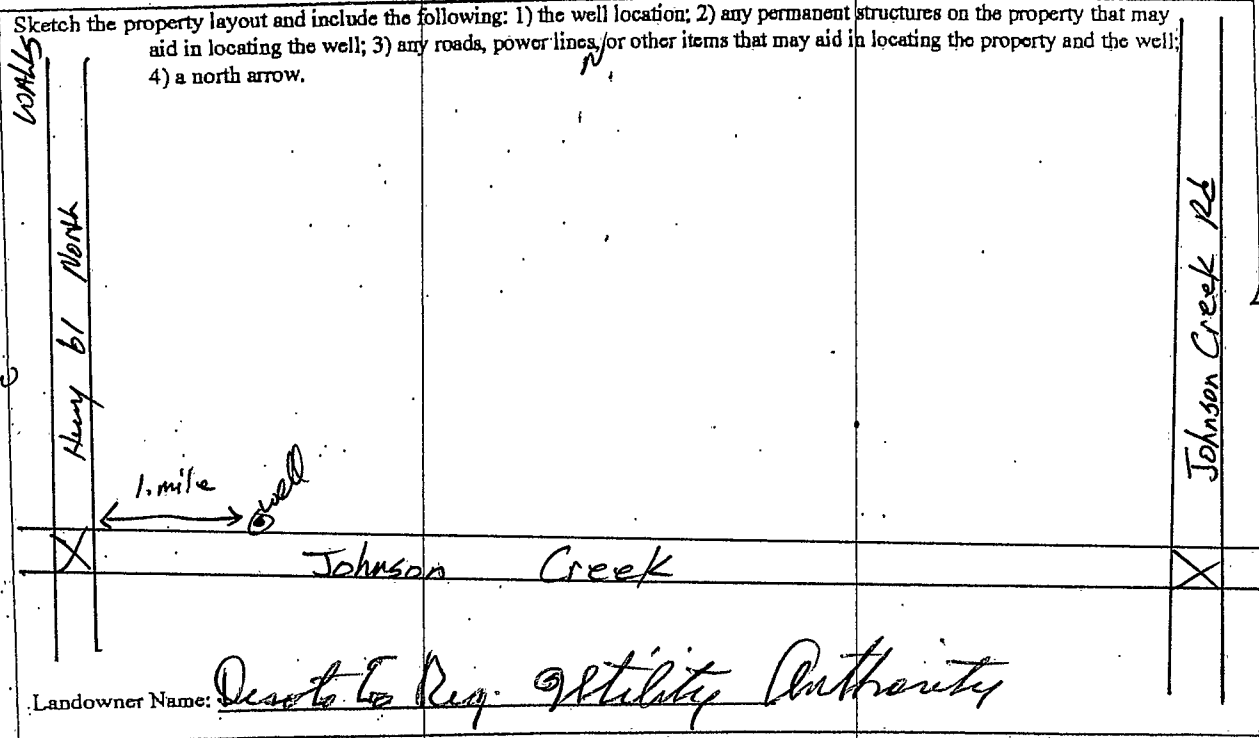 Sketch the property layout and include the following: 1) the well location; 2) any permanent structures on the property that may
aid in locating the well; 3) any roads, power lines, or other items that may aid in locating the property and the well;
4) a north arrow.
N
WALLS
Hwy 61 North
Johnson Creek Rd
1. mile
well
Johnson Creek
Landowner Name: Desoto Co Reg. Utility Authority